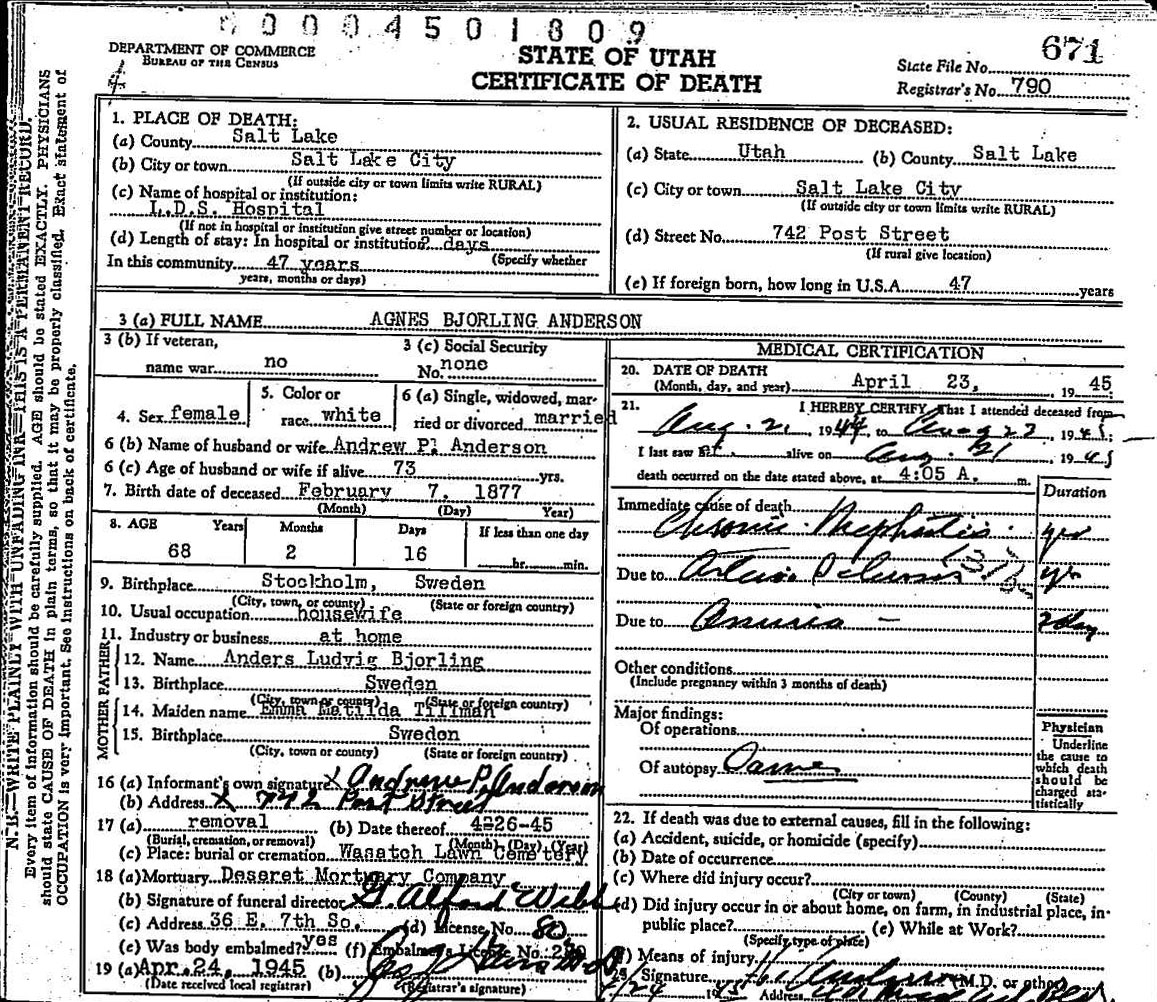 0 0 0 4 5 0 1 8 0 9
DEPARTMENT OF COMMERCE
BUREAU OF THE CENSUS
4
STATE OF UTAH
CERTIFICATE OF DEATH
State File No. 671
Registrar's No. 790
N. B.—WRITE PLAINLY WITH UNFADING INK—THIS IS A PERMANENT RECORD.
Every item of information should be carefully supplied. AGE should be stated EXACTLY. PHYSICIANS
should state CAUSE OF DEATH in plain terms, so that it may be properly classified. Exact statement of
OCCUPATION is very important. See instructions on back of certificate.
1. PLACE OF DEATH:
(a) County Salt Lake
(b) City or town Salt Lake City
(If outside city or town limits write RURAL)
(c) Name of hospital or institution:
L.D.S. Hospital
(If not in hospital or institution give street number or location)
(d) Length of stay: In hospital or institution 2 days
(Specify whether
In this community 47 years
years, months or days)
2. USUAL RESIDENCE OF DECEASED:
(a) State Utah (b) County Salt Lake
(c) City or town Salt Lake City
(If outside city or town limits write RURAL)
(d) Street No. 742 Post Street
(If rural give location)
(e) If foreign born, how long in U.S.A. 47 years
3 (a) FULL NAME AGNES BJORLING ANDERSON
3 (b) If veteran,
name war. no
3 (c) Social Security
No. none
4. Sex female
5. Color or
race white
6 (a) Single, widowed, mar-
ried or divorced married
6 (b) Name of husband or wife Andrew P. Anderson
6 (c) Age of husband or wife if alive 73 yrs.
7. Birth date of deceased February 7, 1877
(Month) (Day) Year)
8. AGE Years Months Days If less than one day
68 2 16 hr. min.
9. Birthplace Stockholm, Sweden
(City, town, or county) (State or foreign country)
10. Usual occupation housewife
11. Industry or business at home
FATHER
12. Name Anders Ludvig Bjorling
13. Birthplace Sweden
(City, town or county) (State or foreign country)
MOTHER
14. Maiden name Emma Matilda Tillman
15. Birthplace Sweden
(City, town or county) (State or foreign country)
16 (a) Informant's own signature x Andrew P. Anderson
(b) Address x 742 Post Street
17 (a) removal (b) Date thereof 4-26-45
(Burial, cremation, or removal) (Month) (Day) (Year)
(c) Place: burial or cremation Wasatch Lawn Cemetery
18 (a) Mortuary Deseret Mortuary Company
(b) Signature of funeral director G Alford Webb
(c) Address 36 E. 7th So. (d) License No. 80
(e) Was body embalmed? yes (f) Embalmers License No.
19 (a) Apr. 24, 1945 (b)
(Date received local registrar) (Registrar's signature)
MEDICAL CERTIFICATION
20. DATE OF DEATH
(Month, day, and year) April 23, 1945
21. I HEREBY CERTIFY, That I attended deceased from
Aug. 2, 1944 to Aug 23, 1945
I last saw her alive on Aug. 21 1945
death occurred on the date stated above, at 4:05 A. m.
Duration
Immediate cause of death
Chronic Nephritis yrs
Due to Arterio Sclerosis yrs
Due to Anuria – 2 day
Other conditions
(Include pregnancy within 3 months of death)
Major findings:
Of operations
Of autopsy Same
Physician
Underline
the cause to
which death
should be
charged sta-
tistically
22. If death was due to external causes, fill in the following:
(a) Accident, suicide, or homicide (specify)
(b) Date of occurrence
(c) Where did injury occur?
(City or town) (County) (State)
(d) Did injury occur in or about home, on farm, in industrial place, in
public place? (e) While at Work?
(Specify type of place)
(f) Means of injury
Signature (M.D. or other)
Address